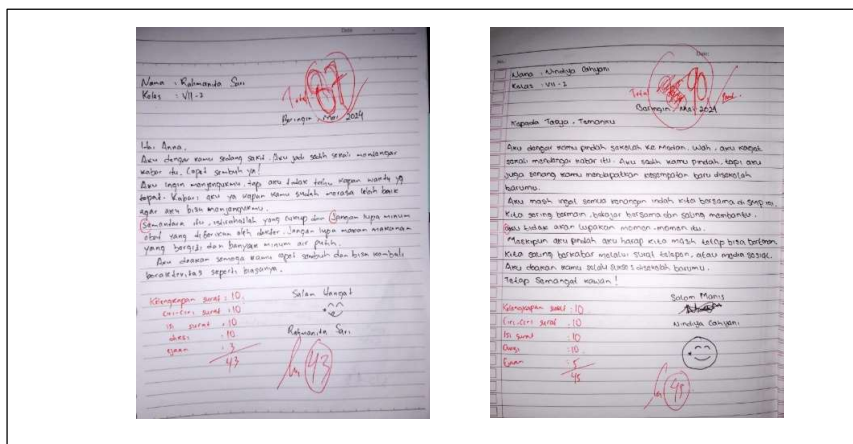 Nama : Rahmanda Sari
Kelas : VII-2
Total 87
Beringin, Mei 2024
Hai Anna,
Aku dengar kamu sedang sakit. Aku jadi sedih sekali mendengar
kabar itu. Cepat sembuh ya!
Aku ingin menjengukmu, tapi aku tidak tahu kapan waktu yg
tepat. Kabari aku ya kapan kamu sudah merasa lebih baik
agar aku bisa menjengukmu.
Semantara itu, istirahatlah yang cukup dan Jangan lupa minum
obat yang diberikan oleh dokter. Jangan lupa makan makanan
yang bergizi dan banyak minum air putih.
Aku doakan semoga kamu cepat sembuh dan bisa kembali
beraktivitas seperti biasanya.
Salam Hangat
Rahmanda Sari
Kelengkapan surat : 10
Ciri-ciri surat : 10
isi surat : 10
diksi : 10
ejaan : 3
43
43
Nama : Nindya Cahyani
Kelas : VII-2
Total 90
Beringin, Mei 2024
Kepada Tasya, Temanku
Aku dengar kamu pindah sekolah ke Medan. Wah, aku kaget
sekali mendengar kabar itu. Aku sedih kamu pindah, tapi aku
juga senang kamu mendapatkan kesempatan baru disekolah
barumu.
Aku masih ingat semua kenangan indah kita bersama di smp ini.
Kita sering bermain, belajar bersama dan saling membantu.
aku tidak akan lupakan momen-momen itu.
Meskipun aku pindah aku harap kita masih tetap bisa berteman
Kita saling berkabar melalui surat telepon, atau media sosial.
Aku doakan kamu selalu sukses disekolah barumu.
Tetap Semangat kawan!
Salam Manis
Nindya Cahyani
Kelengkapan surat : 10
Ciri-ciri surat : 10
Isi surat : 10
Diksi : 10
Ejaan : 5
45
45